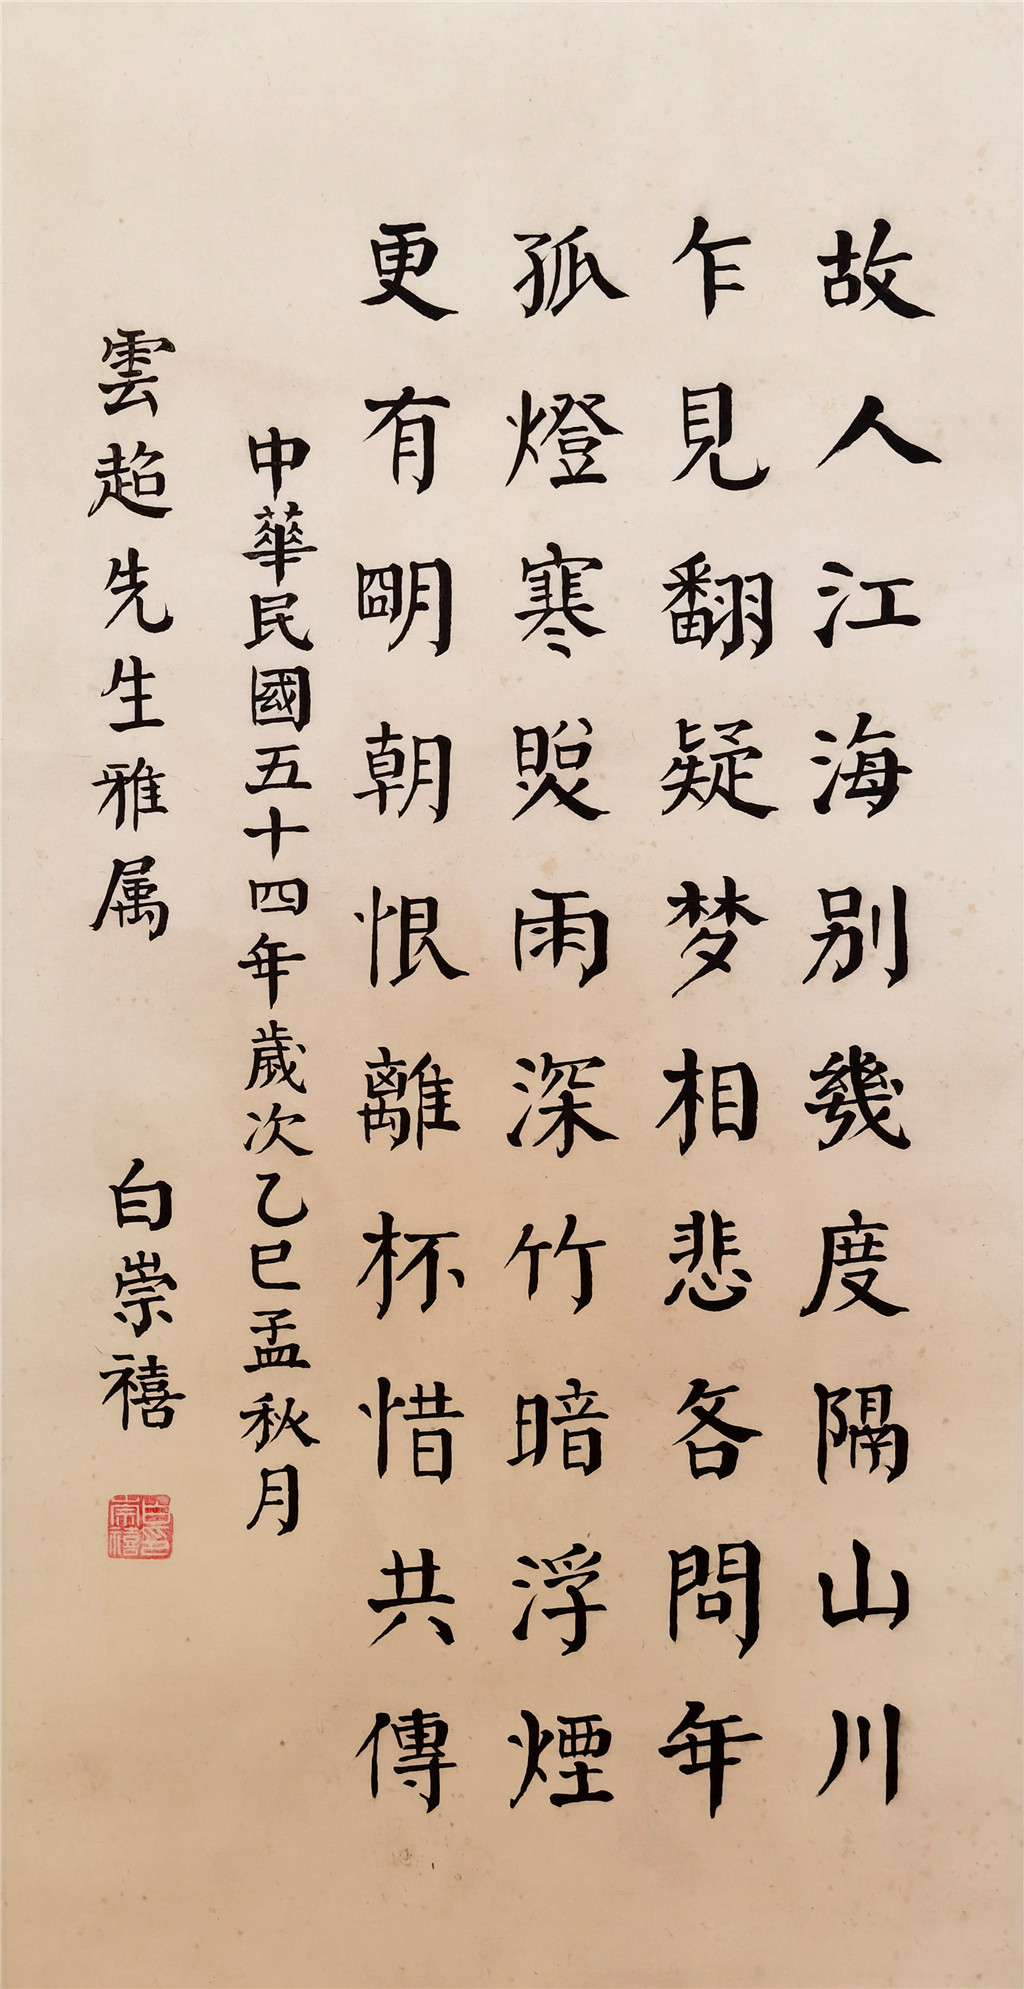 故人江海别幾度隔山川
乍見翻疑梦相悲各問年
孤燈寒照雨深竹暗浮煙
更有明朝恨離杯惜共傳
中華民國五十四年歲次乙巳孟秋月
雲超先生雅属
白崇禧
白崇禧印